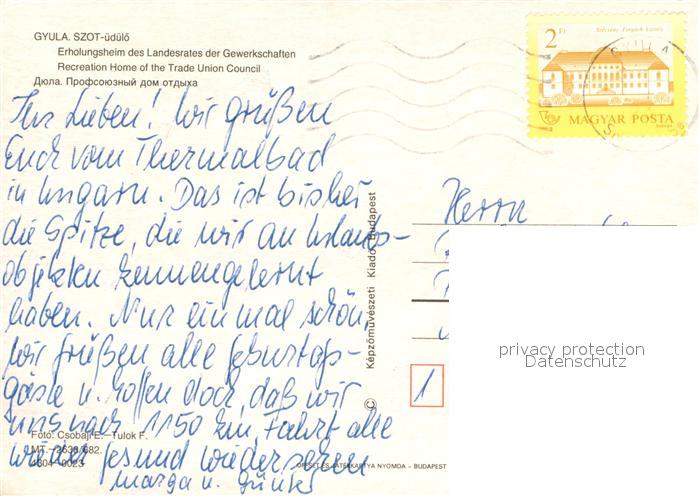 GYULA. SZOT-üdülő
Erholungsheim des Landesrates der Gewerkschaften
Recreation Home of the Trade Union Council
Дюла. Профсоюзный дом отдыха
2 Ft
MAGYAR POSTA
Ihr Lieben! Wir grüßen
Euch vom Thermalbad
in Ungarn. Das ist bisher
die Spitze, die wir an Urlaubs-
objekten kennengelernt
haben. Nur einmal schön,
wir grüßen alle Geburtags-
gäste u. hoffen doch, daß wir
uns nach 1150 km, Fahrt alle
gesund wiedersehen
Marga u. Günter
Herrn
1
© Képzőművészeti Kiadó, Budapest
privacy protection
Datenschutz
Fotó: Csobaji E.–Tulok F.
OFFSET ÉS JÁTÉKKÁRTYA NYOMDA – BUDAPEST